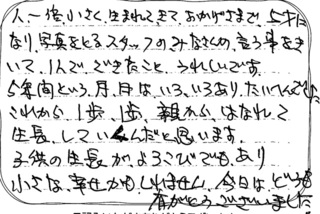 人一倍小さく、生まれてきて、おかげさまで、5才に
なり、写真をとるスタッフのみなさんの、言う事をき
いて、1人で、できたこと、うれしいです。
5年間という、月、日は、いろ、いろあり、たいへんでした
これから、1歩、1歩、親から、はなれて
生長、して いくんだと思います。
子供の生長が、よろこびでもあり
小さな、幸せかもしれません、今日は、どうも
有がとうございました